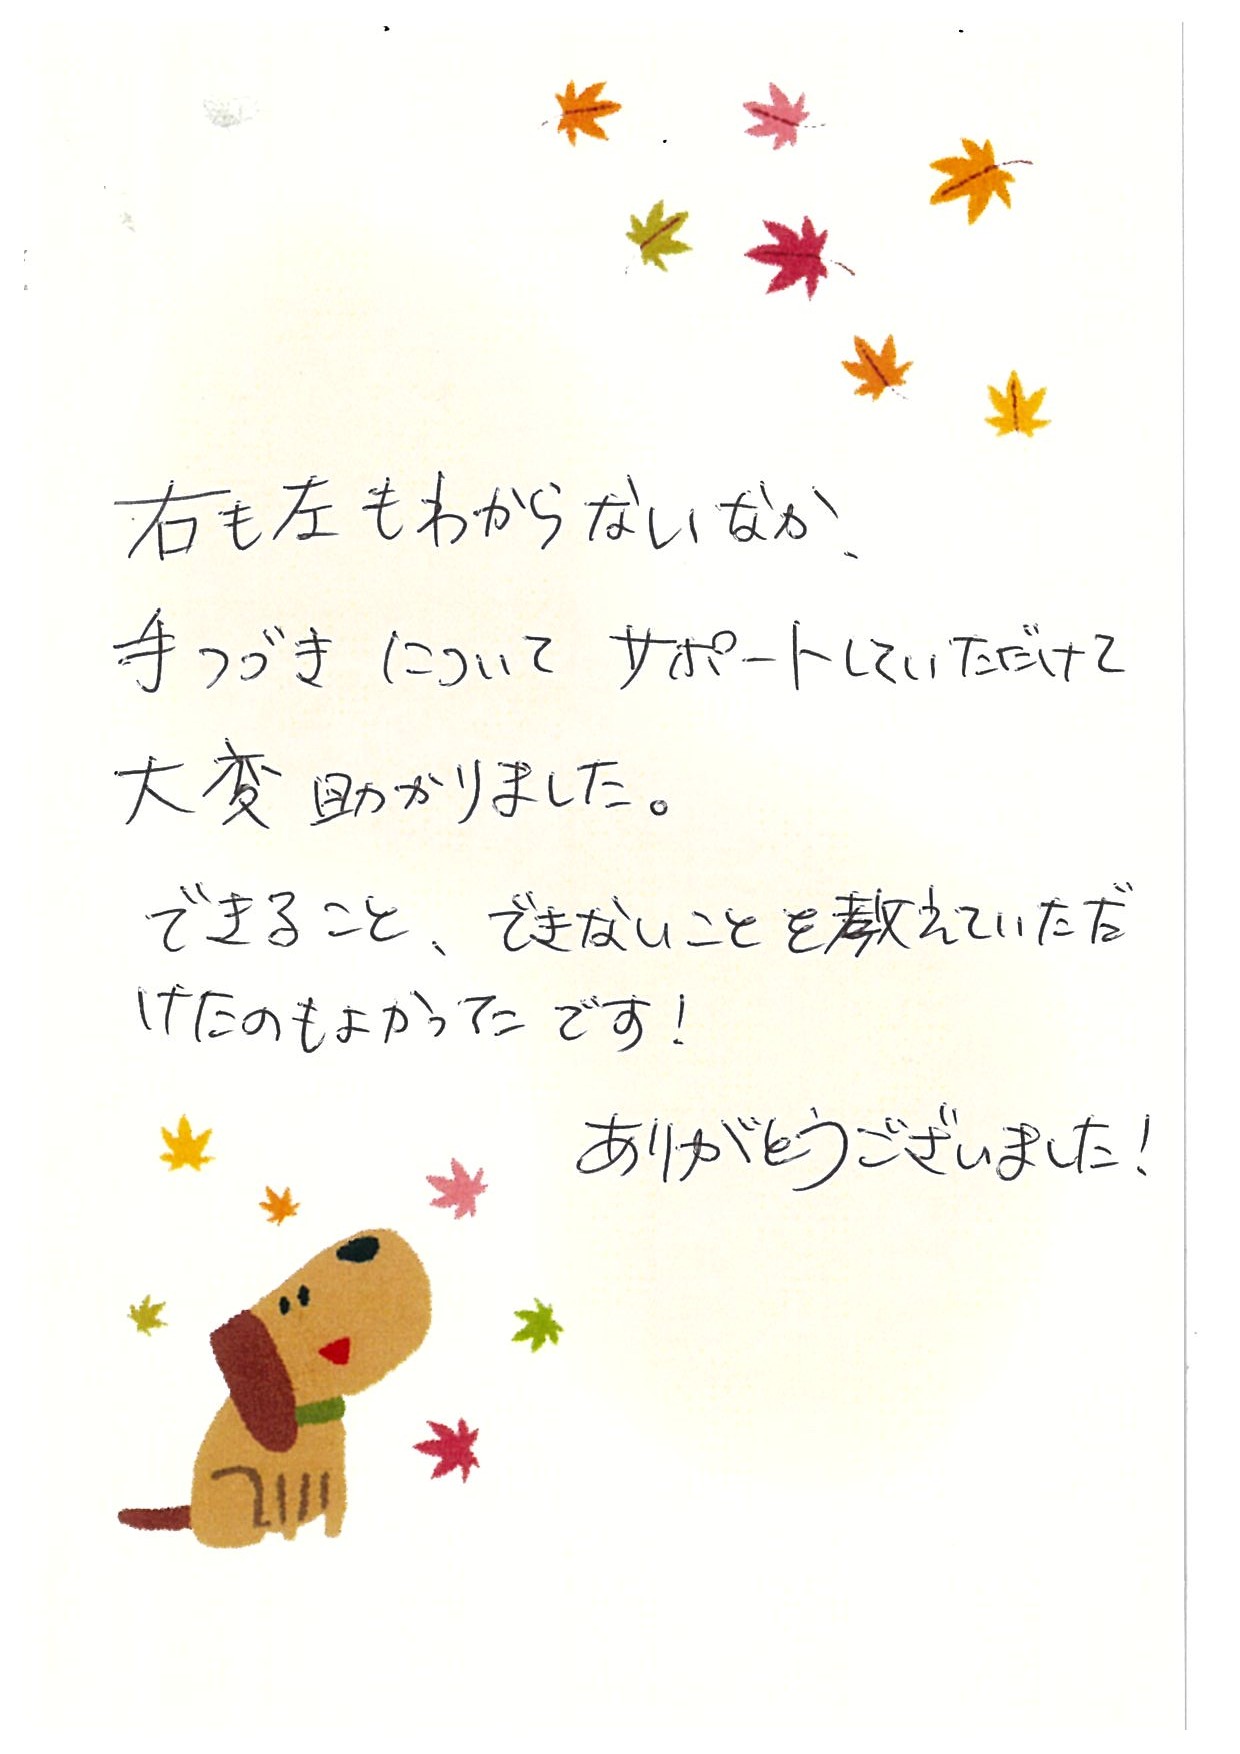 右も左もわからないなか、
手つづきについて サポートしていただけて
大変助かりました。
できること、できないことを教えていただ
けたのもよかったです！
ありがとうございました！